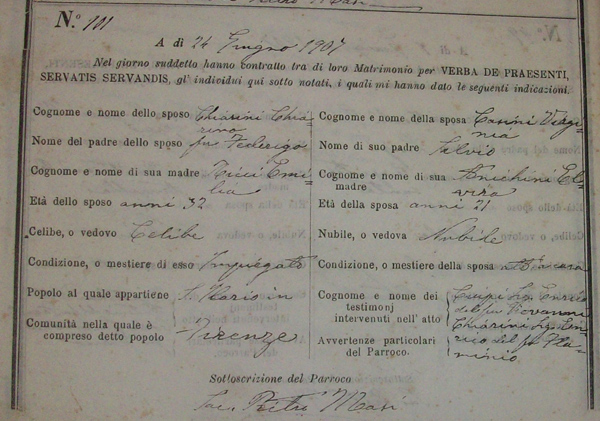 N.° 101
A dì 24 Giugno 1907
Nel giorno suddetto hanno contratto tra di loro Matrimonio per VERBA DE PRAESENTI,
SERVATIS SERVANDIS, gl' individui qui sotto notati, i quali mi hanno dato le seguenti indicazioni.
Cognome e nome dello sposo Chiarini Chia=
rino
Nome del padre dello sposo fu Federigo
Cognome e nome di sua madre Tucci Emi=
lia
Età dello sposo anni 32
Celibe, o vedovo Celibe
Condizione, o mestiere di esso Impiegato
Popolo al quale appartiene S. Ilario in
Comunità nella quale è
compreso detto popolo Firenze
Cognome e nome della sposa Casini Virgi=
nia
Nome di suo padre Silvio
Cognome e nome di sua
madre Anichini El=
vira
Età della sposa anni 21
Nubile, o vedova Nubile
Condizione, o mestiere della sposa
Cognome e nome dei
testimonj
intervenuti nell' atto
Enrico
del fu Giovanni
Chiarini En=
rico del fu Fla=
minio
Avvertenze particolari
del Parroco.
Sottoscrizione del Parroco
Sac. Pietro Masi